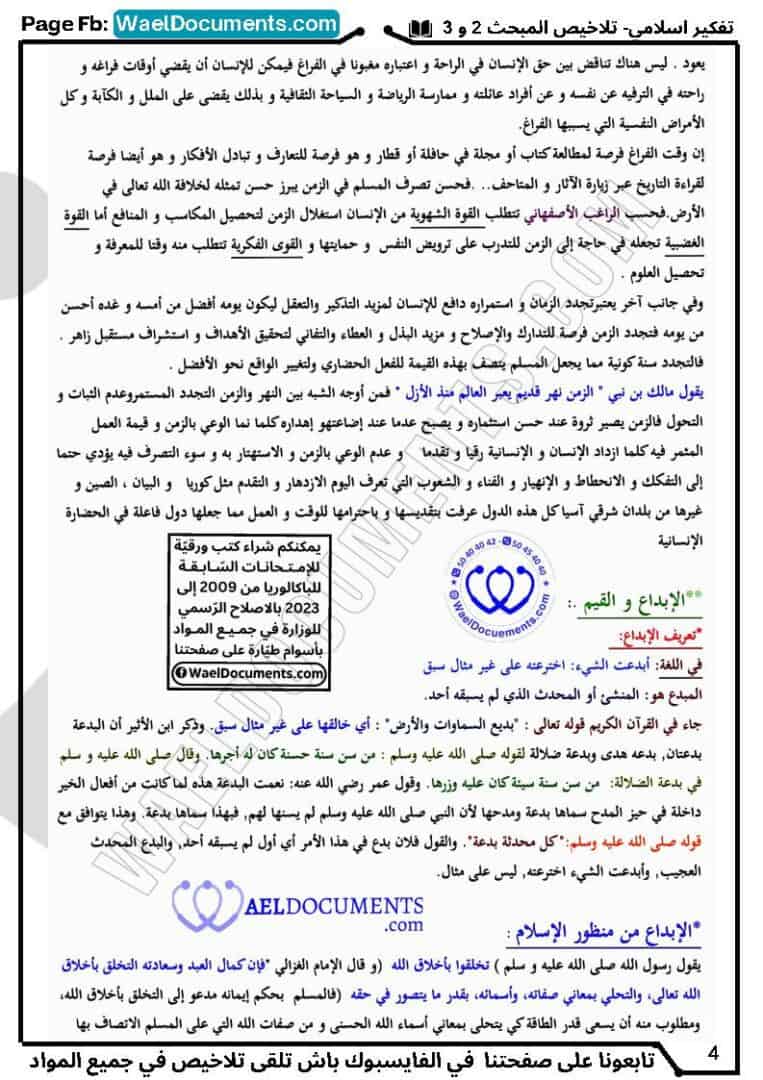 تفكير اسلامي- تلاخيص المبحث 2 و 3
Page Fb: WaelDocuments.com
يعود . ليس هناك تناقض بين حق الإنسان في الراحة و اعتباره مغبونا في الفراغ فيمكن للإنسان أن يقضي أوقات فراغه و
راحته في الترفيه عن نفسه و عن أفراد عائلته و ممارسة الرياضة و السياحة الثقافية و بذلك يقضى على الملل و الكآبة و كل
الأمراض النفسية التي يسببها الفراغ.
إن وقت الفراغ فرصة لمطالعة كتاب أو مجلة في حافلة أو قطار و هو فرصة للتعارف و تبادل الأفكار و هو أيضا فرصة
لقراءة التاريخ عبر زيارة الآثار و المتاحف.. .فحسن تصرف المسلم في الزمن يبرز حسن تمثله لخلافة الله تعالى في
الأرض.فحسب الراغب الأصفهاني تتطلب القوة الشهوية من الإنسان استغلال الزمن لتحصيل المكاسب و المنافع أما القوة
الغضبية تجعله في حاجة إلى الزمن للتدرب على ترويض النفس و حمايتها و القوى الفكرية تتطلب منه وقتا للمعرفة و
تحصيل العلوم .
وفي جانب آخر يعتبرتجدد الزمان و استمراره دافع للإنسان لمزيد التذكير والتعقل ليكون يومه أفضل من أمسه و غده أحسن
من يومه فتجدد الزمن فرصة للتدارك والإصلاح و مزيد البذل و العطاء والتفاني لتحقيق الأهداف و استشراف مستقبل زاهر .
فالتجدد سنة كونية مما يجعل المسلم يتصف بهذه القيمة للفعل الحضاري ولتغيير الواقع نحو الأفضل .
يقول مالك بن نبي " الزمن نهر قديم يعبر العالم منذ الأزل " فمن أوجه الشبه بين النهر والزمن التجدد المستمروعدم الثبات و
التحول فالزمن يصير ثروة عند حسن استثماره و يصبح عدما عند إضاعتهو إهداره كلما نما الوعي بالزمن و قيمة العمل
المثمر فيه كلما ازداد الإنسان و الإنسانية رقيا و تقدما و عدم الوعي بالزمن و الاستهتار به و سوء التصرف فيه يؤدي حتما
إلى التفكك و الانحطاط و الإنهيار و الفناء و الشعوب التي تعرف اليوم الازدهار و التقدم مثل كوريا و اليبان ، الصين و
غيرها من بلدان شرقي آسيا كل هذه الدول عرفت بتقديسها و باحترامها للوقت و العمل مما جعلها دول فاعلة في الحضارة
الإنسانية
يمكنكم شراء كتب ورقيّة
للإمتحانات السّابقة
للباكالوريا من 2009 إلى
2023 بالاصلاح الرّسمي
للوزارة في جميع المواد
بأسوام طيّارة على صفحتنا
WaelDocuments.com
50 40 40 42 - 50 45 40 40
WaelDocuements.com
**الإبداع و القيم .:
*تعريف الإبداع:
في اللغة: أبدعت الشيء: اخترعته على غير مثال سبق
المبدع هو: المنشئ أو المحدث الذي لم يسبقه أحد.
جاء في القرآن الكريم قوله تعالى : "بديع السماوات والأرض" : أي خالقها على غير مثال سبق. وذكر ابن الأثير أن البدعة
بدعتان, بدعه هدى وبدعة ضلالة لقوله صلى الله عليه وسلم : من سن سنة حسنة كان له أجرها. وقال صلى الله عليه و سلم
في بدعة الضلالة: من سن سنة سيئة كان عليه وزرها. وقول عمر رضي الله عنه: نعمت البدعة هذه لما كانت من أفعال الخير
داخلة في حيز المدح سماها بدعة ومدحها لأن النبي صلى الله عليه وسلم لم يسنها لهم, فبهذا سماها بدعة. وهذا يتوافق مع
قوله صلى الله عليه وسلم:"كل محدثة بدعة". والقول فلان بدع في هذا الأمر أي أول لم يسبقه أحد, والبدع المحدث
العجيب, وأبدعت الشيء اخترعته, ليس على مثال.
WAELDOCUMENTS
.com
*الإبداع من منظور الإسلام :
يقول رسول الله صلى الله عليه و سلم ) تخلقوا بأخلاق الله (و قال الإمام الغزالي "فإن كمال العبد وسعادته التخلق بأخلاق
الله تعالى، والتحلي بمعاني صفاته، وأسمائه، بقدر ما يتصور في حقه (فالمسلم بحكم إيمانه مدعو إلى التخلق بأخلاق الله،
ومطلوب منه أن يسعى قدر الطاقة كي يتحلى بمعاني أسماء الله الحسنى و من صفات الله التي على المسلم الاتصاف بها
WAELDOCUMENTS.COM
4
تابعونا على صفحتنا في الفايسبوك باش تلقى تلاخيص في جميع المواد